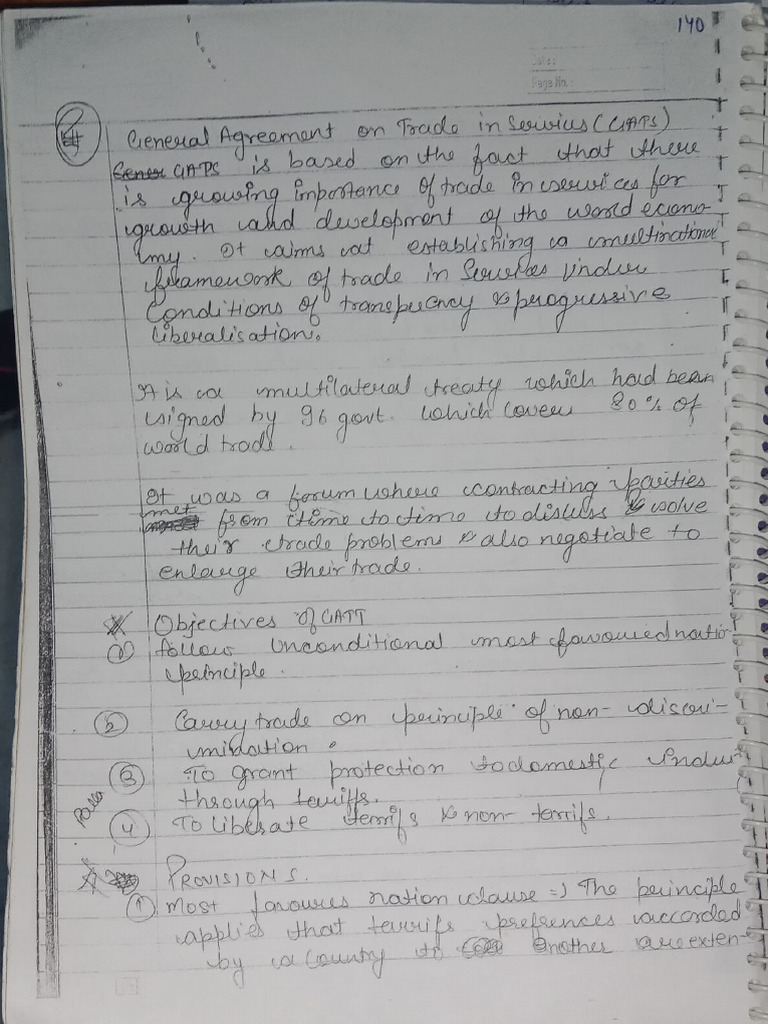 140
Date:
Page No.:
General Agreement on Trade in Services (GATS)
GATS is based on the fact that there
is growing importance of trade in services for
growth and development of the world econo-
my. It aims at establishing a multinational
framework of trade in Services Under
Conditions of transpuency & progressive
liberalisation.
It is a multilateral treaty which had been
signed by 96 govt. which cover 80% of
world trade.
It was a forum where contracting parities
met from time to time to discuss & solve
their trade problems & also negotiate to
enlarge their trade.
Objectives of GATT
① follow Unconditional most favoured natio-
principle.
② Carry trade on principle of non-discri-
mination.
③ To grant protection to domestic Indus
through teriffs.
④ To liberate terrifs & non-terrifs.
PROVISIONS.
① Most favoures nation clause => The principle
applies that terrifs prefrences accorded
by a Country to another are exten-